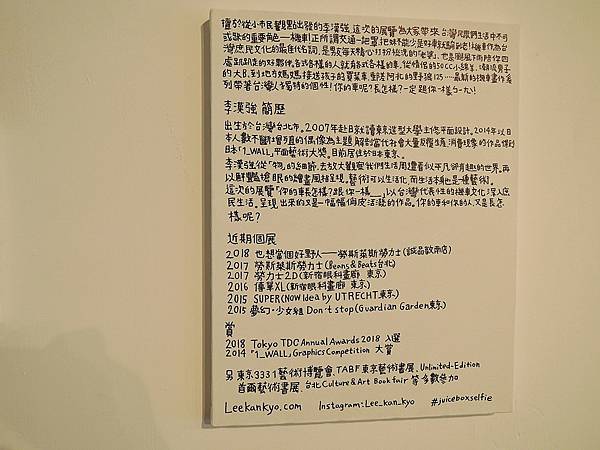 擅於從小市民觀點出發的李漢強,這次的展覽為大家帶來台灣
或缺的重要角色——機車!正所謂交通一把罩,把妹不能少是好車
灣庶民文化的最佳代名詞,是男孩每天精心打扮拉
處趴趴走的好夥伴。各式各樣的人就有各式各樣的車,從情侶的50CC小綿羊、潮流男子
的大B,到地方媽媽接送孩子的買菜車,野狼125……最新的機車畫作系
列帶著台灣人獨特的個性!你的車呢?長怎樣?一定跟你一樣ㄅㄧㄤˋ!
李漢強 簡歷
出生於台灣台北市。2007年赴日就讀東京造型大學主修平面設計。2014年以日
本人數不斷增的偶像為主題,解剖當代社會大量及壓消費現象的作品得到
日本「1_WALL」平面藝術大獎。目前居住於日本東京。
李漢強從「物」的細節,去放大觀察我們生活周遭看似平凡卻有趣的世界。再
以鮮豔搶眼的繪畫風格呈現。藝術可以生活化,而生活本身也是一種藝術。
這次的展覽「你的車長怎樣?跟你一樣__」,以台灣代表性的機車文化,深入庶
民生活。呈現出來的又是一幅幅俏皮活潑的作品。你的車和你的人,又是長怎
樣呢?
近期個展
2018 也想當個好野人——勞斯萊斯勞力士(誠品敦南店)
2017 勞斯萊斯勞力士(Beans&Beats台北)
2017 勞力士2D(新宿眼科畫廊 東京)
2016 傳單XL(新宿眼科畫廊 東京)
2015 SUPER(NOW Idea by UTRECHT東京)
2015 夢幻・少女組 Don't stop(Guardian Garden東京)
賞
2018 Tokyo TDC Annual Awards 2018 入選
2014 「1_WALL」Graphics Competition 大賞
另 東京3331藝術博覽會、TABF東京藝術書展、Unlimited-Edition
首爾藝術書展、台北Culture & Art Book fair 等多數參加
Leekankyo.com Instagram:Lee_kan_kyo #juiceboxselfie